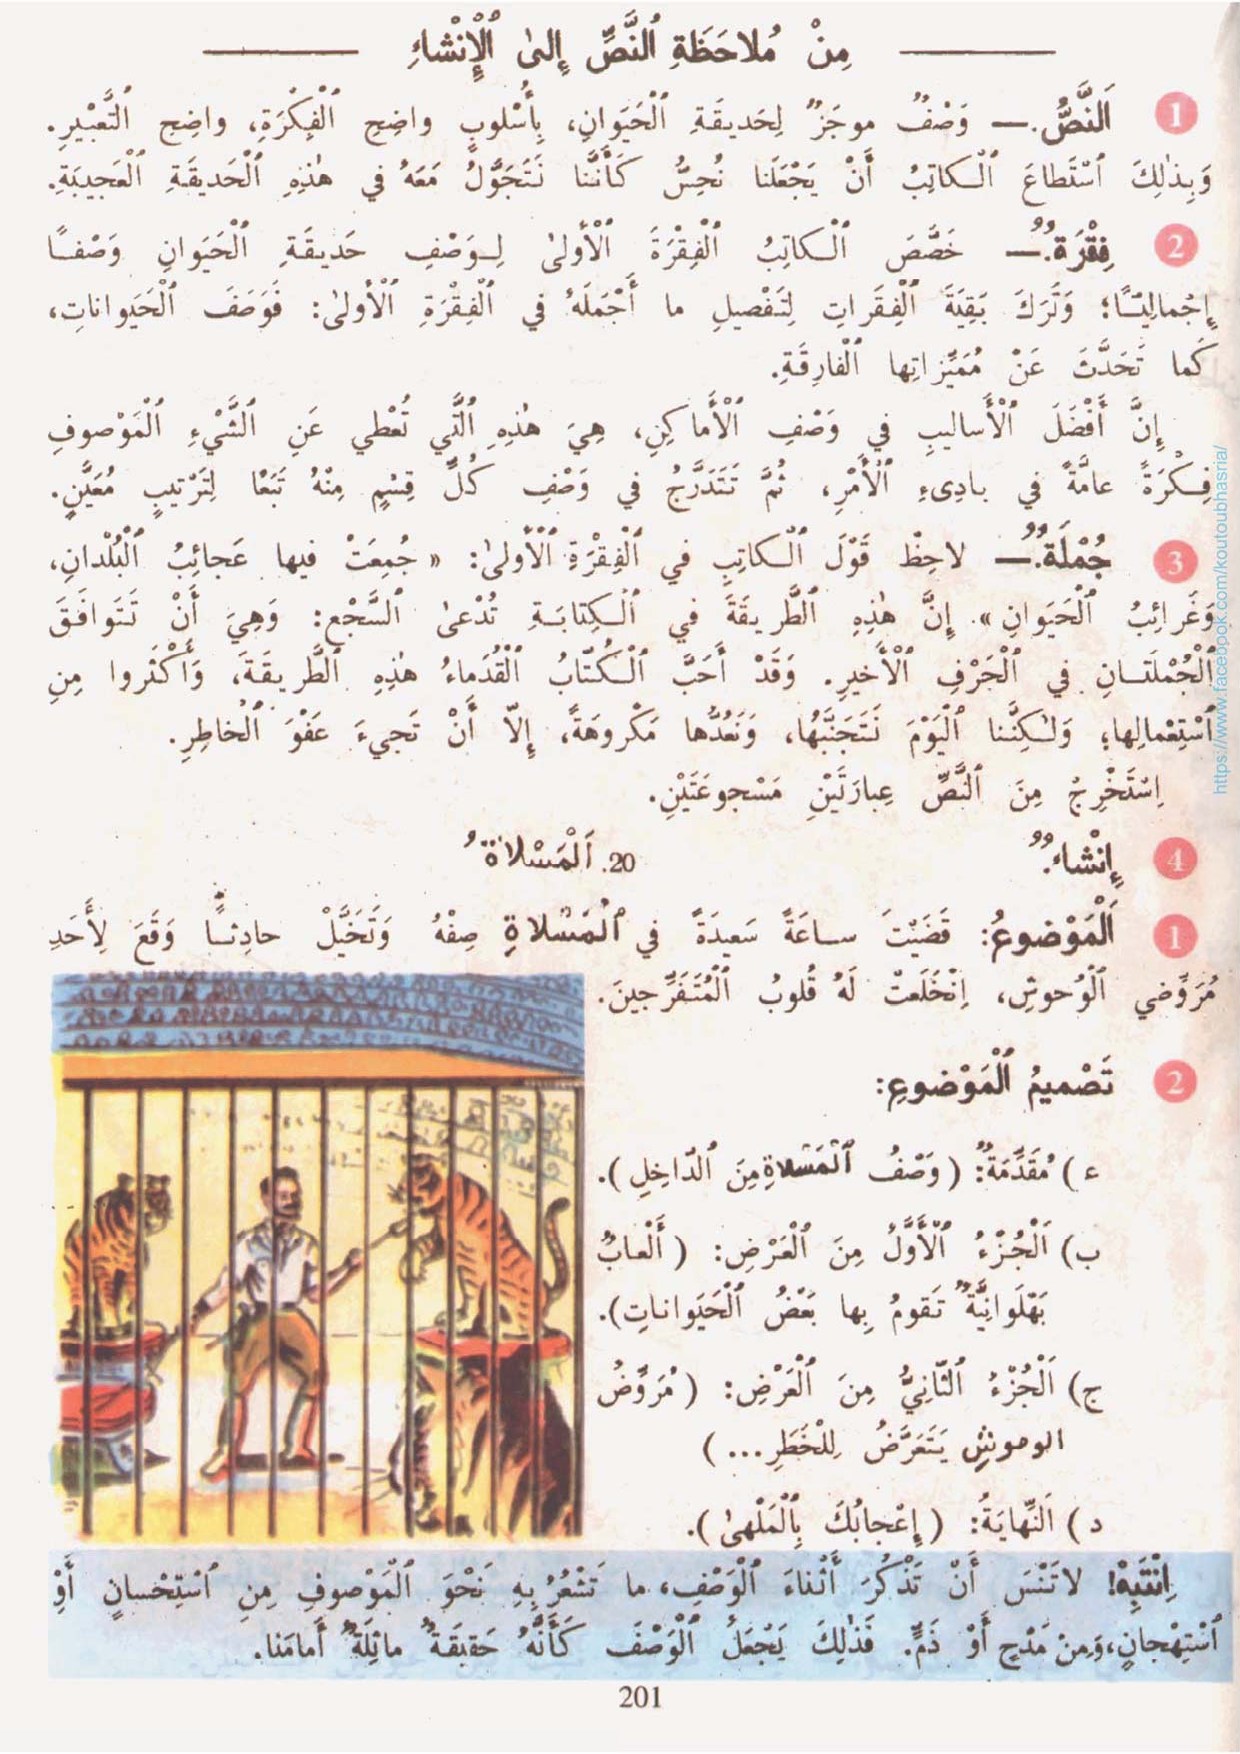 مِنْ مُلاحَظَةِ ٱلنَّصِّ إِلىٰ ٱلْإِنْشاءِ
1 اَلنَّصُّ.— وَصْفٌ موجَزٌ لِحَديقَةِ ٱلْحَيَوانِ، بِأُسْلوبٍ واضِحِ ٱلْفِكْرَةِ، واضِحِ ٱلتَّعْبيرِ.
وَبِذٰلِكَ ٱسْتَطاعَ ٱلْكاتِبُ أَنْ يَجْعَلَنا نُحِسُّ كَأَنَّنا نَتَجَوَّلُ مَعَهُ في هٰذِهِ ٱلْحَديقَةِ ٱلْعَجيبَةِ.
2 فِقْرَةٌ.— خَصَّصَ ٱلْكاتِبُ ٱلْفِقْرَةَ ٱلْأولىٰ لِوَصْفِ حَديقَةِ ٱلْحَيَوانِ وَصْفًا
إِجْمالِيًّا؛ وَتَرَكَ بَقِيَةَ ٱلْفِقَراتِ لِتَفْصيلِ ما أَجْمَلَهُ في ٱلْفِقْرَةِ ٱلْأولىٰ: فَوَصَفَ ٱلْحَيَواناتِ،
كَما تَحَدَّثَ عَنْ مُمَيِّزاتِها ٱلْفارِقَةِ.
إِنَّ أَفْضَلَ ٱلْأَساليبِ في وَصْفِ ٱلْأَماكِنِ، هِيَ هٰذِهِ ٱلَّتي تُعْطي عَنِ ٱلشَّيْءِ ٱلْمَوْصوفِ
فِكْرَةً عامَّةً في بادِىءِ ٱلْأَمْرِ، ثُمَّ تَتَدَرَّجُ في وَصْفِ كُلِّ قِسْمٍ مِنْهُ تَبَعًا لِتَرْتيبٍ مُعَيَّنٍ.
3 جُمْلَةٌ.— لاحِظْ قَوْلَ ٱلْكاتِبِ في ٱلْفِقْرَةِ ٱلْأولىٰ: « جُمِعَتْ فيها عَجائِبُ ٱلْبُلْدانِ،
وَغَرائِبُ ٱلْحَيَوانِ ». إِنَّ هٰذِهِ ٱلطَّريقَةَ في ٱلْكِتابَةِ تُدْعىٰ ٱلسَّجْعَ: وَهِيَ أَنْ تَتَوافَقَ
ٱلْجُمْلَتانِ في ٱلْحَرْفِ ٱلْأَخيرِ. وَقَدْ أَحَبَّ ٱلْكُتّابُ ٱلْقُدَماءُ هٰذِهِ ٱلطَّريقَةَ، وَأَكْثَروا مِنِ
ٱسْتِعْمالِها؛ وَلٰكِنَّنا ٱلْيَوْمَ نَتَجَنَّبُها، وَنَعُدُّها مَكْروهَةً، إِلّا أَنْ تَجيءَ عَفْوَ ٱلْخاطِرِ.
اِسْتَخْرِجْ مِنَ ٱلنَّصِّ عِبارَتَيْنِ مَسْجوعَتَيْنِ.
4 إِنْشاءٌ. 20. اَلْمَسْلاةُ
1 اَلْمَوْضوعُ: قَضَيْتَ ساعَةً سَعيدَةً في ٱلْمَسْلاةِ صِفْهُ وَتَخَيَّلْ حادِثًا وَقَعَ لِأَحَدِ
مُرَوِّضي ٱلْوُحوشِ، اِنْخَلَعَتْ لَهُ قُلوبُ ٱلْمُتَفَرِّجينَ.
2 تَصْميمُ ٱلْمَوْضوعِ:
ء) مُقَدِّمَةٌ: ( وَصْفُ ٱلْمَسْلاةِ مِنَ ٱلدّاخِلِ ).
ب) اَلْجُزْءُ ٱلْأَوَّلُ مِنَ ٱلْعَرْضِ: ( أَلْعابٌ
بَهْلَوانِيَّةٌ تَقومُ بِها بَعْضُ ٱلْحَيَواناتِ).
ج) اَلْجُزْءُ ٱلثّانِيُّ مِنَ ٱلْعَرْضِ: ( مُرَوِّضُ
الوحوشِ يَتَعَرَّضُ لِلْخَطَرِ... )
د ) اَلنِّهايَةُ: ( إِعْجابُكَ بِٱلْمَلْهىٰ ).
اِنْتَبِهْ! لا تَنْسَ أَنْ تَذْكُرَ أَثْناءَ ٱلْوَصْفِ، ما تَشْعُرُ بِهِ نَحْوَ ٱلْمَوْصوفِ مِنِ ٱسْتِحْسانٍ أَوْ
ٱسْتِهْجانٍ، وَمِنْ مَدْحٍ أَوْ ذَمٍّ. فَذٰلِكَ يَجْعَلُ ٱلْوَصْفَ كَأَنَّهُ حَقيقَةٌ ماثِلَةٌ أَمامَنا.
201
https://www.facebook.com/koutoubhasria/